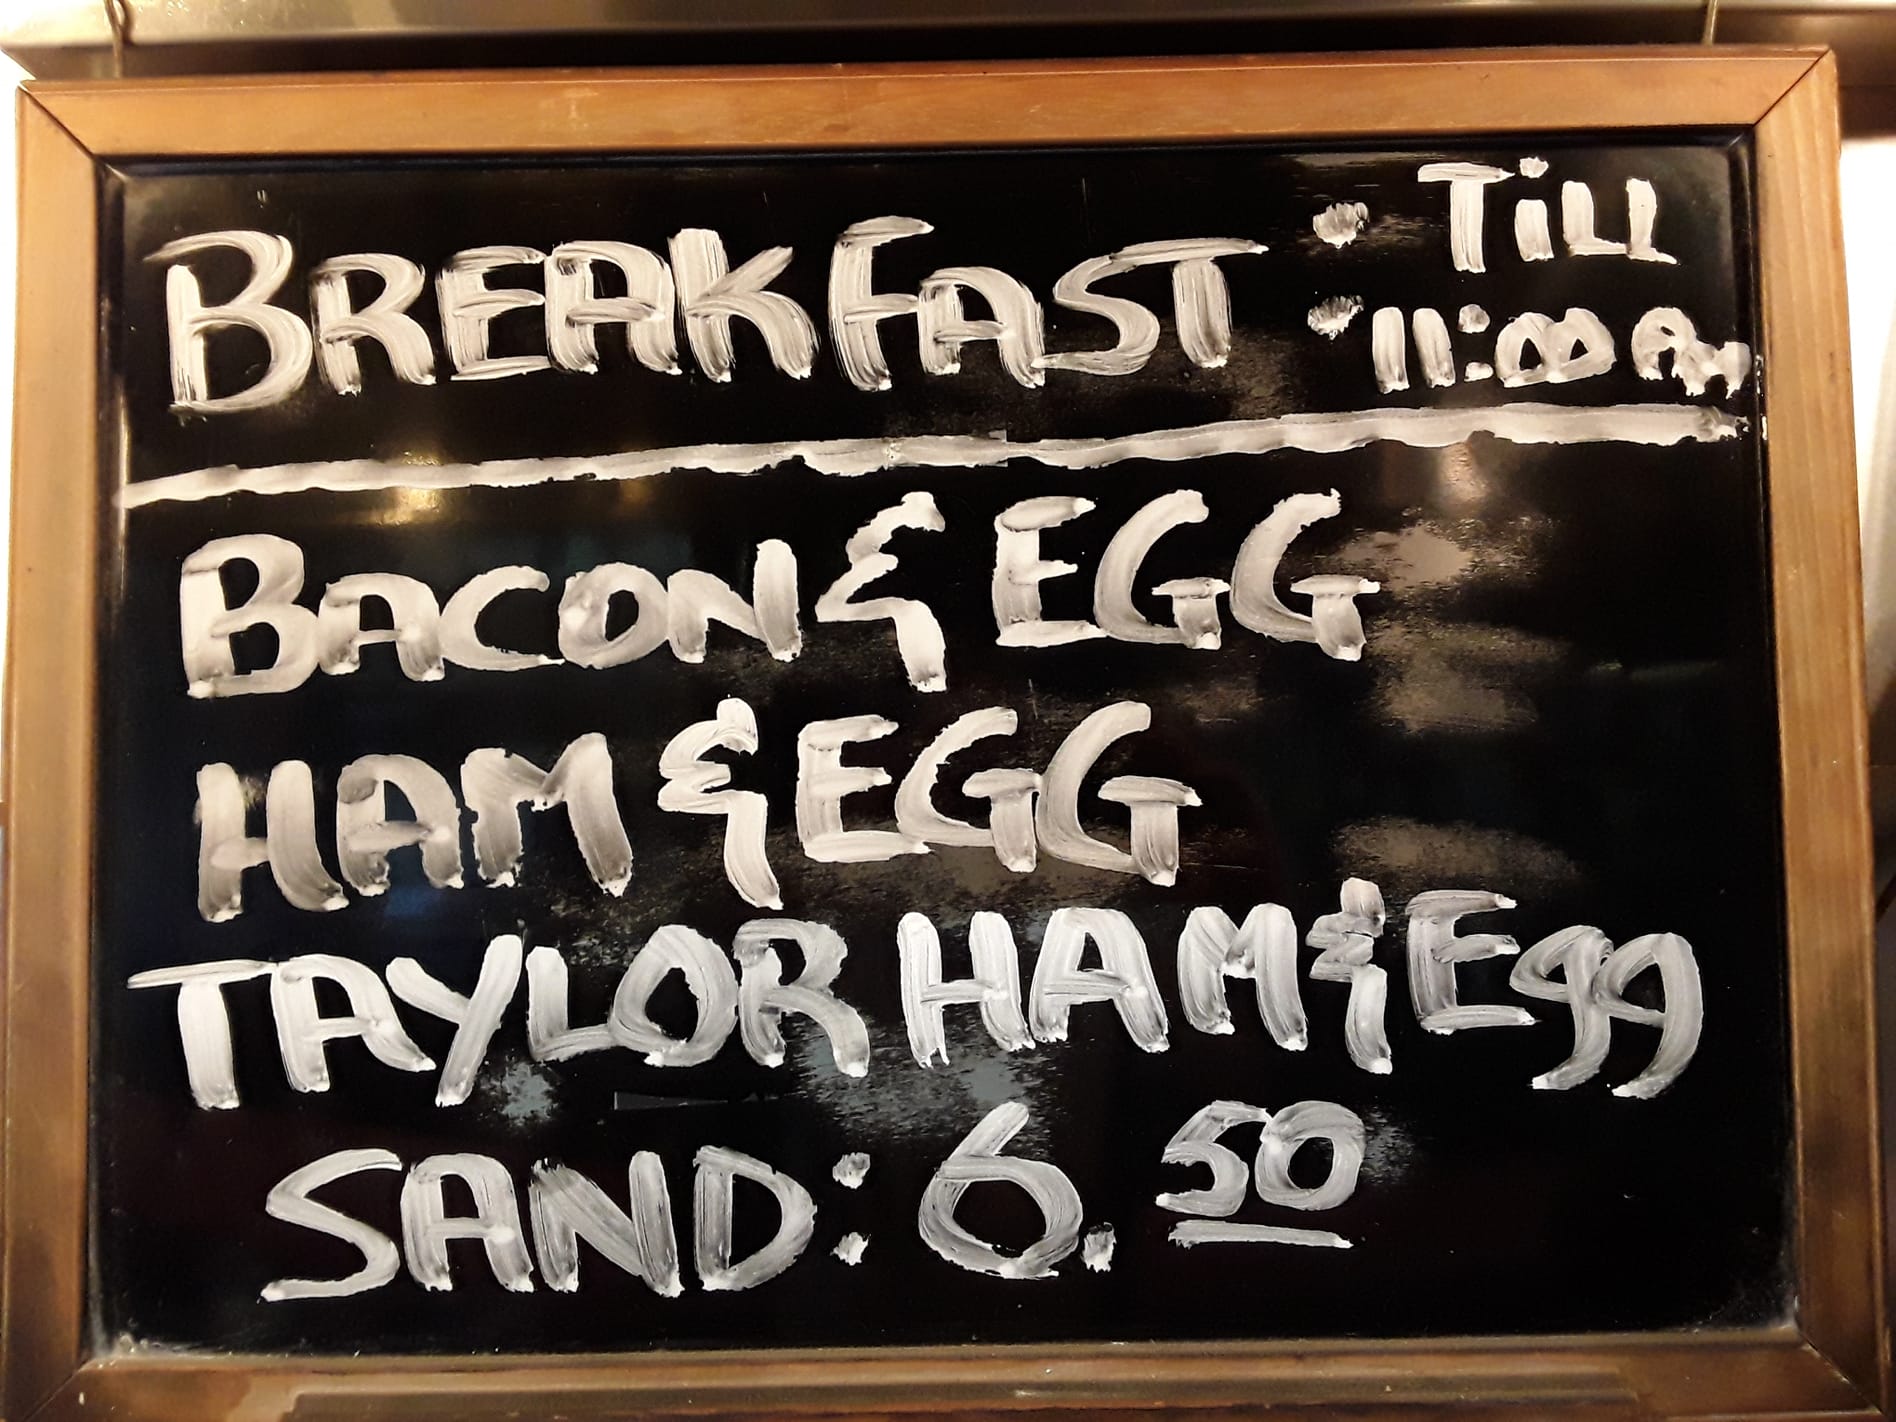 BREAKFAST : Till
11:00 Am
BACON & EGG
HAM & EGG
TAYLOR HAM & Egg
SAND: 6.50